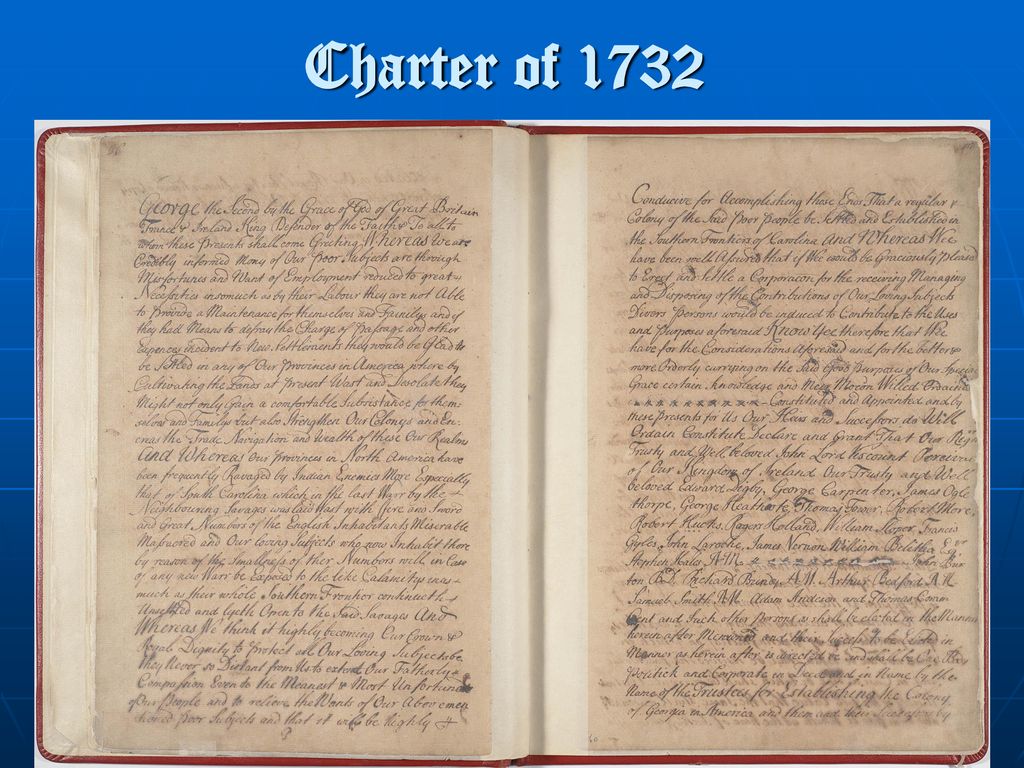 Charter of 1732
George the Second by the Grace of God of Great Britain
France & Ireland King Defender of the Faith & To all to
whom these Presents shall come Greeting Whereas We are
Credibly informed Many of Our Poor Subjects are through
Misfortunes and Want of Employment reduced to great
Necessities insomuch as by their Labour they are not Able
to Provide a Maintenance for themselves and Familys and if
they had Means to defray the Charge of Passage and other
Expences incident to New Settlements they would be Glad to
be Settled in any of Our Provinces in America where by
Cultivating the Lands at Present Wast and Desolate they
Might not only Gain a comfortable Subsistance for them-
selves and Familys but also Strengthen Our Colonys and En-
creas the Trade Navigation and Wealth of these Our Realms
And Whereas Our Provinces in North America have
been frequently Ravaged by Indian Enemies More Especially
that of South Carolina which in the last Warr by the
Neighbouring Savages was laid Wast with Fire and Sword
and Great Numbers of the English Inhabitants Miserably
Massacred and Our Loving Subjects who now Inhabit there
by reason of the Smallness of their Numbers will in Case
of any new Warr be Exposed to the like Calamitys inas-
much as their whole Southern Frontier continueth
Unsettled and lyeth Open to the Said Savages And
Whereas We think it highly becoming Our Crown &
Royal Dignity to protect all Our Loving Subjects be
they Never so Distant from Us to extend Our Fatherly
Compassion Even to the Meanest & Most Unfortunate
of Our People and to relieve the Wants of Our Above men
tioned Poor Subjects and that it will be highly
Conducive for Accomplishing those Ends That a regular &
Colony of the Said Poor People be Settled and Established in
the Southern Frontiers of Carolina And Whereas We
have been well Assured that if We would be Graciously Pleased
to Erect and Settle a Corporacon for the receiving Managing
and Disposing of the Contributions of Our Loving Subjects
Divers Persons would be induced to Contribute to the Uses
and Purposes aforesaid Know Yee therefore that We
have for the Considerations Aforesaid and for the better &
more Orderly carrying on the Said Good Purposes of Our Special
Grace certain Knowledge and Meer Mocon Willed Ordained
Constituted and Appointed and by
these Presents for Us Our Heirs and Successors do Will
Ordain Constitute Declare and Grant That Our Right
Trusty and Well beloved John Lord Viscount Percival
of Our Kingdom of Ireland Our Trusty and Well
beloved Edward Digby, George Carpenter, James Ogle
thorpe, George Heathcote, Thomas Tower, Robert More,
Robert Hucks, Rogers Holland, William Sloper, Francis
Eyles, John Laroche, James Vernon, William Belitha Esqrs
Stephen Hales A.M. John Bur
ton B.D. Richard Bundy A.M. Arthur Bedford A.M.
Samuel Smith A.M. Adam Anderson and Thomas Coram
Gent and Such other Persons as shall be elected in the Manner
herein after Mentioned and their Successors to be Elected in
Manner as herein after is directed be and shall be One Body
Politick and Corporate in Deed and in Name by the
Name of the Trustees for Establishing the Colony
of Georgia in America and them and their Successors by